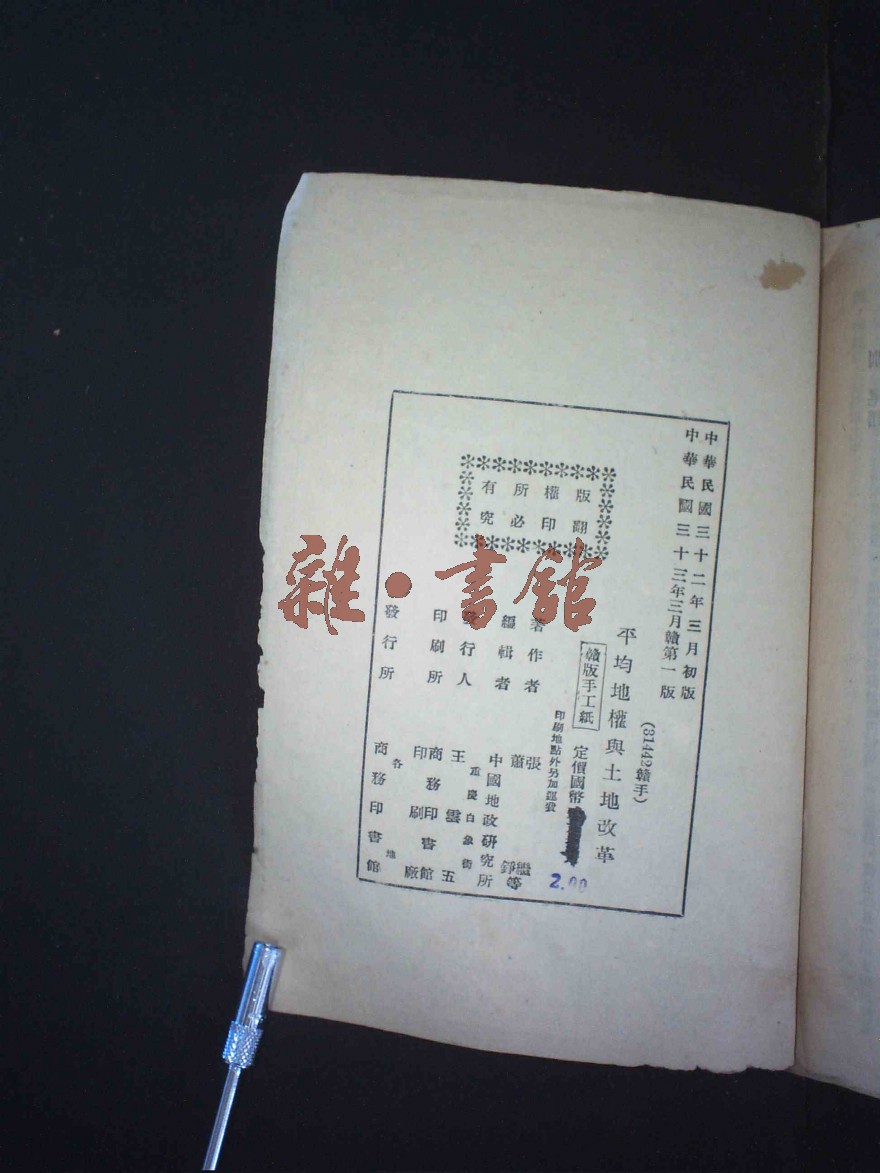 中華民國三十二年三月初版
中華民國三十三年三月贛第一版
(31442贛手)
平均地權與土地改革
贛版手工紙
定價國幣
2.00
印刷地點外另加運費
版權所有
翻印必究
著作者
張繼
蕭錚等
編輯者
中國地政研究所
發行人
重慶白象街
王雲五
印刷所
商務印書館
印刷廠
發行所
各地
商務印書館
雜·書館